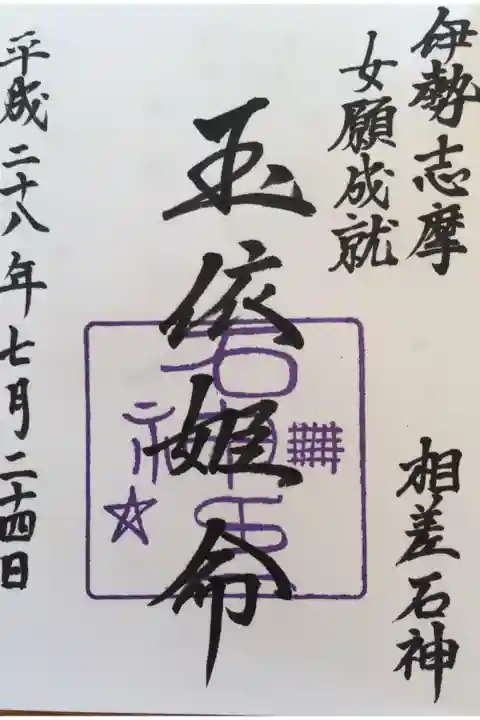 伊勢志摩
相差石神
女願成就
玉依姫命
石神
平成二十八年七月二十四日